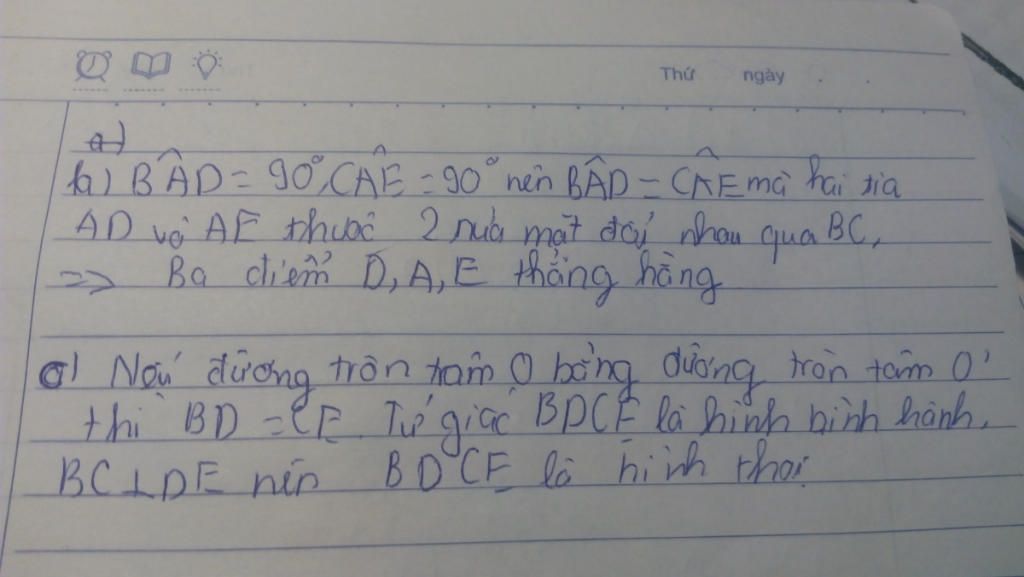 Thứ ngày
a)
b) BÂD = 90°, CÂE = 90° nên BÂD = CÂE mà hai tia
AD và AE thuộc 2 nửa mặt đối nhau qua BC,
=> Ba điểm D, A, E thẳng hàng
c) Nếu đường tròn tâm O bằng đường tròn tâm O'
thì BD = CE. Tứ giác BDCE là hình bình hành,
BC⊥DE nên BDCE là hình thoi